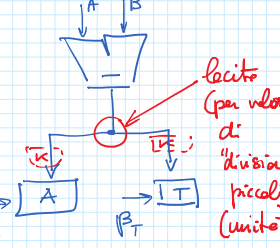 A B
lecite
(per velo
di
"division
piccol
(unité
K K
A 1T
β_T